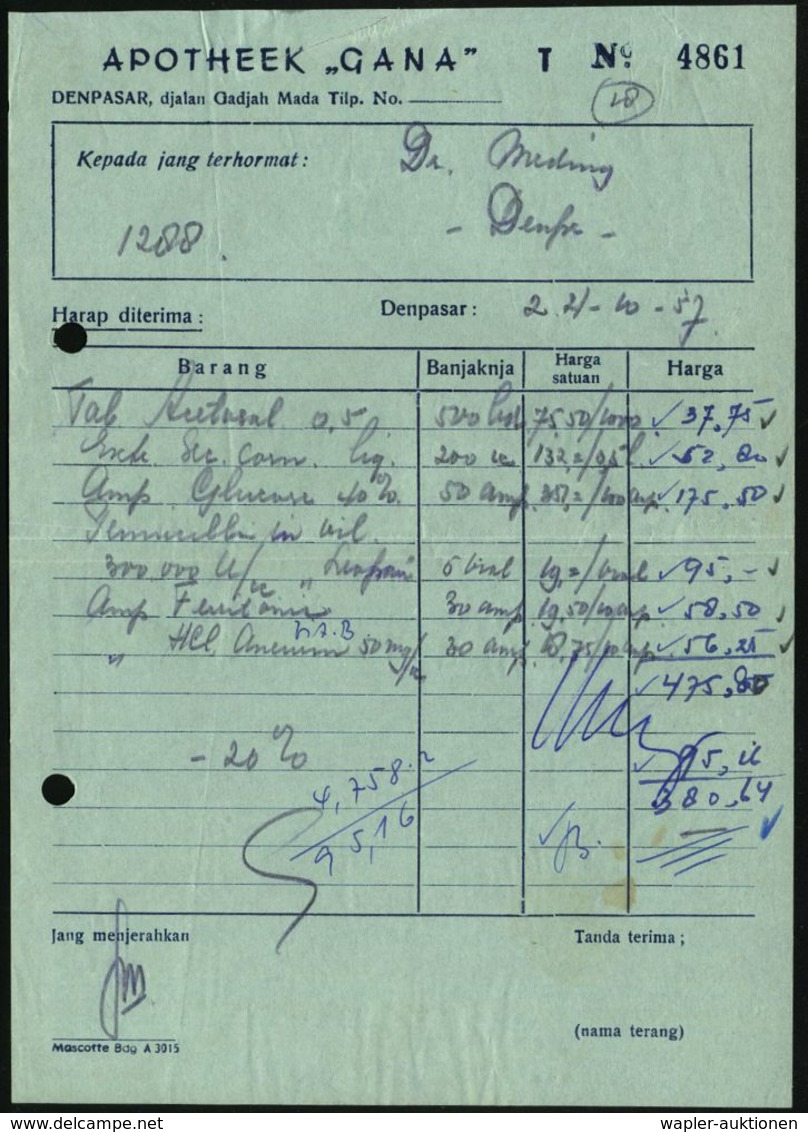 APOTHEEK „GANA” T Nº. 4861
DENPASAR, djalan Gadjah Mada Tilp. No.
28
Kepada jang terhormat : Dr. Meding
1288. - Denpr -
Harap diterima : Denpasar : 2 21-10-57
Barang Banjaknja Harga satuan Harga
Tab Acetosal 0,5 500 75,50/1000 37,75
Extr. Sec. Corn. liq. 200 cc 132,=/0,5 l 52,80
Amp Glucose 40% 50 amp 351,=/100 amp 175,50
in oil.
300.000 U/cc 5 vial 19,=/vial 95,-
Amp 30 amp 19,50/10 amp 58,50
" HCl. Aneurin 50 mg/cc 30 amp 18,75/10 amp 56,25
475,80
- 20% 95,16
4,758.2 380,64
95,16
Jang menjerahkan Tanda terima ;
(nama terang)
Mascotte Bdg A 3015
wapler-auktionen